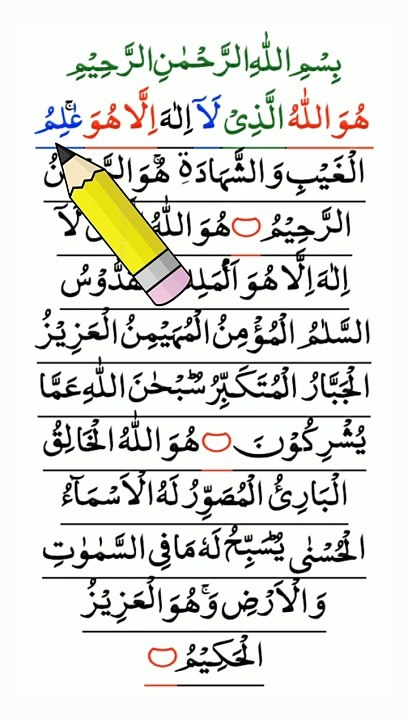 بِسْمِ اللّٰهِ الرَّحْمٰنِ الرَّحِيْمِ
هُوَ اللّٰهُ الَّذِىْ لَآ اِلٰهَ اِلَّا هُوَ ۚ عٰلِمُ
الْغَيْبِ وَ الشَّهَادَةِ ۚ هُوَ
الرَّحِيْمُ ۝ هُوَ اللّٰهُ لَآ
اِلٰهَ اِلَّا هُوَ ۚ
السَّلٰمُ الْمُؤْمِنُ الْمُهَيْمِنُ الْعَزِيْزُ
الْجَبَّارُ الْمُتَكَبِّرُ ؕ سُبْحٰنَ اللّٰهِ عَمَّا
يُشْرِكُوْنَ ۝ هُوَ اللّٰهُ الْخَالِقُ
الْبَارِئُ الْمُصَوِّرُ لَهُ الْاَسْمَآءُ
الْحُسْنٰى ؕ يُسَبِّحُ لَهٗ مَا فِى السَّمٰوٰتِ
وَ الْاَرْضِ ۚ وَ هُوَ الْعَزِيْزُ
الْحَكِيْمُ ۝